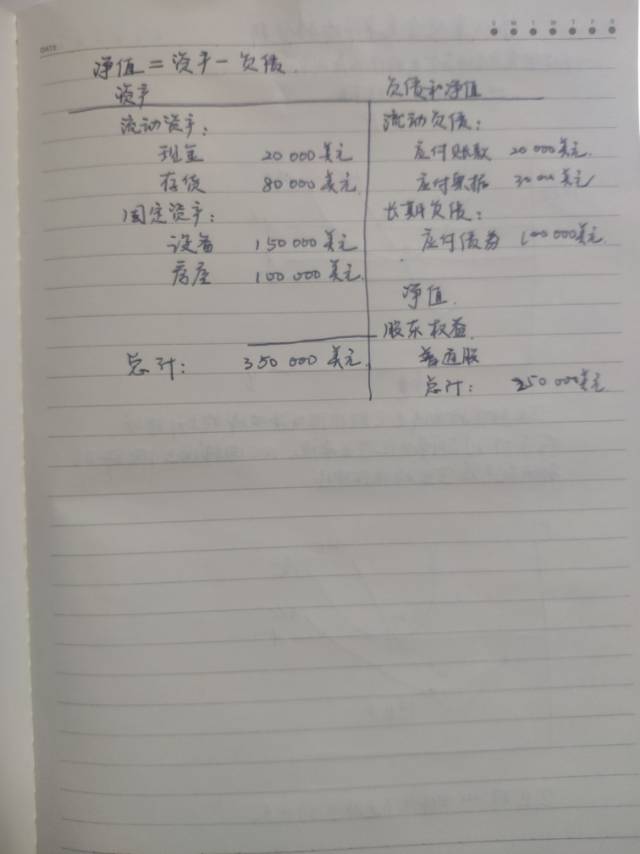 DATE
S M T W T F S
净值=资产-负债
资产 负债和净值
流动资产: 流动负债:
现金 20 000美元 应付账款 20 000美元
存货 80 000美元 应付票据 30 000美元
固定资产: 长期负债:
设备 150 000美元 应付债券 100 000美元
房屋 100 000美元
净值
股东权益
普通股
总计: 350 000美元 总计: 250 000美元